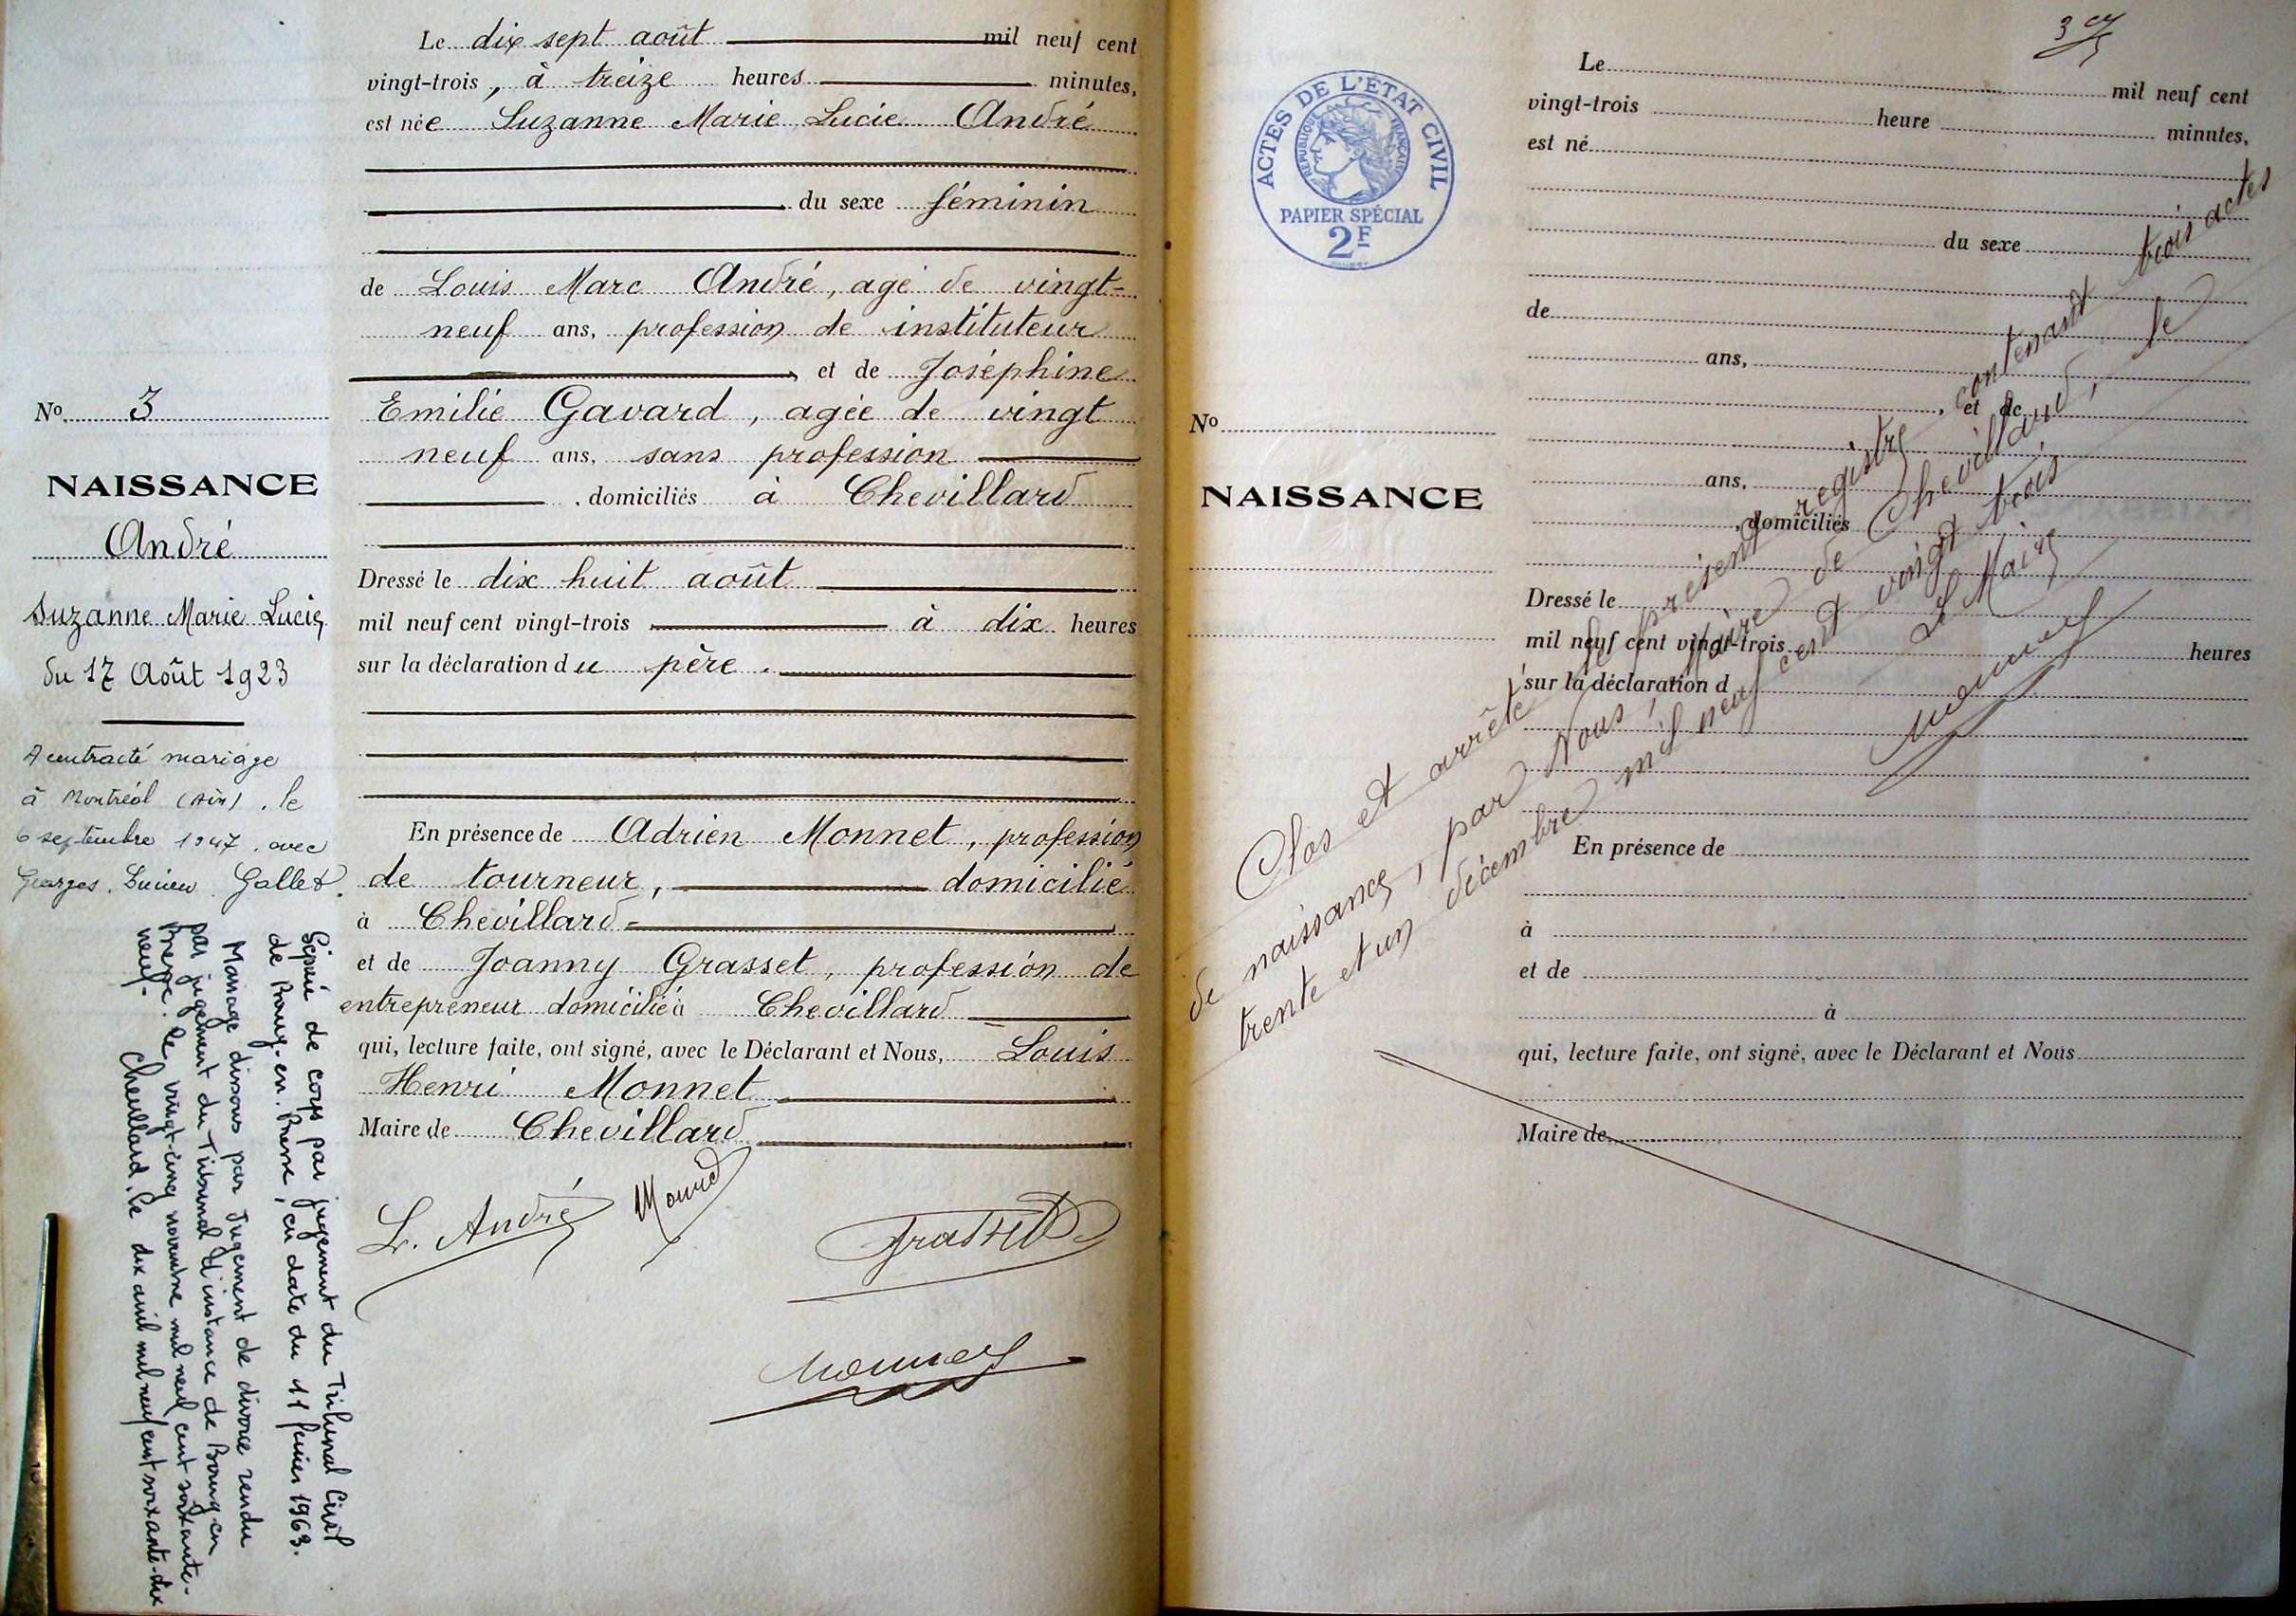 Le dix sept août mil neuf cent
vingt-trois, à treize heures minutes,
est née Suzanne Marie Lucie André
du sexe féminin
de Louis Marc André, agé de vingt-
neuf ans, profession de instituteur
et de Joséphine
Emilie Gavard, agée de vingt
neuf ans, sans profession
domiciliés à Chevillard
Dressé le dix huit août
mil neuf cent vingt-trois à dix heures
sur la déclaration du père.
En présence de Adrien Monnet, profession
de tourneur, domicilié
à Chevillard
et de Joanny Grasset, profession de
entrepreneur domicilié à Chevillard
qui, lecture faite, ont signé, avec le Déclarant et Nous, Louis
Henri Monnet
Maire de Chevillard
L. André
Grasset
Monnet
No 3
NAISSANCE
André
Suzanne Marie Lucie
du 17 Août 1923
A contracté mariage
à Montréal (Ain), le
6 septembre 1947, avec
Georges, Lucien Gallet.
Séparé de corps par jugement du Tribunal Civil
de Bourg-en-Bresse, en date du 11 1963.
Mariage dissous par Jugement de divorce rendu
par jugement du Tribunal d'instance de Bourg en
Bresse. le vingt-cinq novembre mil neuf cent soixante-
neuf. Chevillard, le dix avril mil neuf cent soixante-dix
3
ACTES DE L'ÉTAT CIVIL
RÉPUBLIQUE FRANÇAISE
PAPIER SPÉCIAL
2F
No
NAISSANCE
Le mil neuf cent
vingt-trois heure minutes,
est né
du sexe
de
ans,
, et de
ans,
, domiciliés
Dressé le
mil neuf cent vingt-trois heures
sur la déclaration d
En présence de
à
et de
à
qui, lecture faite, ont signé, avec le Déclarant et Nous
Maire de
Clos et arrêté le présent registre, contenant trois actes
de naissance, par Nous, Maire de Chevillard, le
trente et un décembre mil neuf cent vingt trois
Le Maire
Monnet